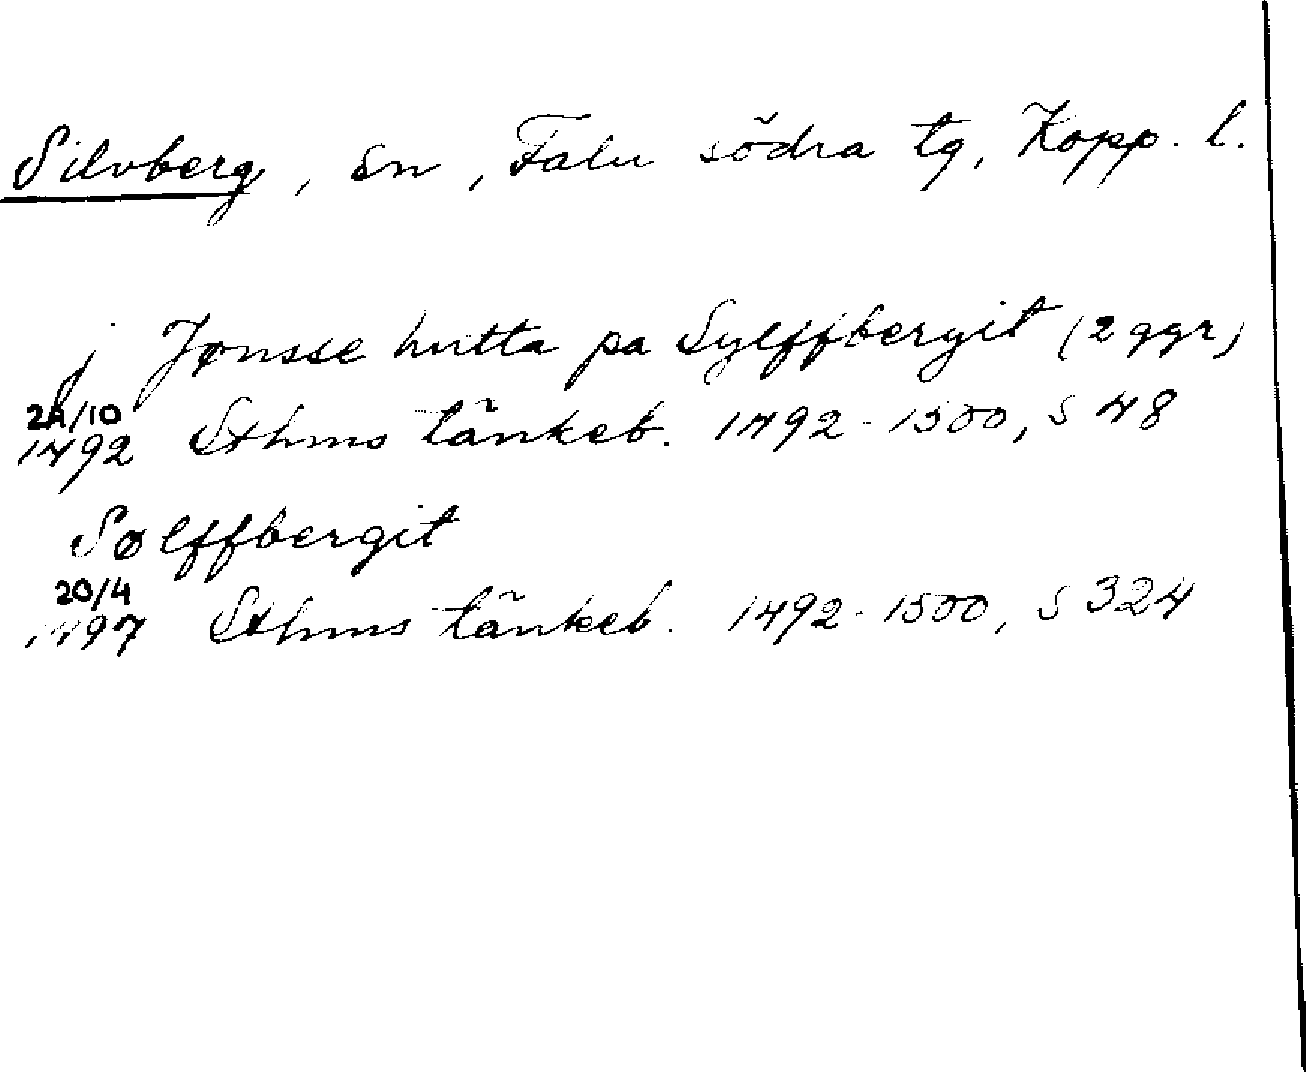 Silvberg, sn, Falu södra tg, Kopp. l.
j Jønsse hutta pa Sylffbergit (2 ggr)
24/10
1492 Sthms tänkeb. 1492-1500, s 48
Sølffbergit
20/4
1497 Sthms tänkeb. 1492-1500, s 324